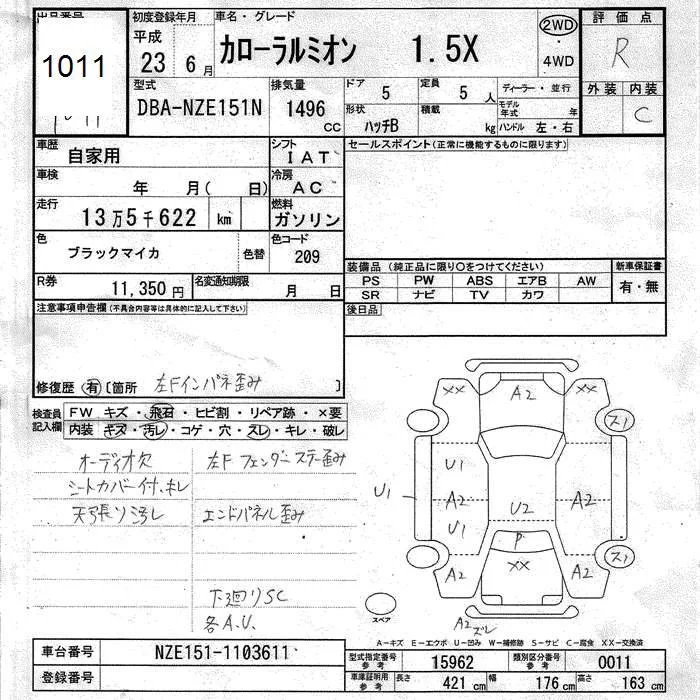 出品番号
1011
初度登録年月
平成
23 6月
車名・グレード
カローラルミオン 1.5X
2WD
・
4WD
評価点
R
外装 内装
C
型式
DBA-NZE151N
排気量
1496
CC
ドア
5
定員
5 人
形状
ハッチB
積載
kg
ディーラー・並行
モデル年式 年
ハンドル 左・右
車歴
自家用
シフト
IAT
車検
年 月( 日)
冷房
AC
走行
13万5千622 km
燃料
ガソリン
色
ブラックマイカ
色替
色コード
209
R券
11,350 円
名変通知期限
月 日
セールスポイント(正常に機能するものに限ります)
装備品 (純正品に限り○をつけてください)
PS PW ABS エアB AW
SR ナビ TV カワ
新車保証書
有・無
後日品
注意事項申告欄(不具合内容等は具体的に記入して下さい)
修復歴 有 〔箇所 左Fインパネ歪み 〕
検査員記入欄
FW キズ・飛石・ヒビ割・リペア跡・×要
内装 キズ・汚レ・コゲ・穴・スレ・キレ・破レ
オーディオ欠
シートカバー付、キレ
天張り汚レ
左Fフェンダーステー歪み
エンドパネル歪み
下廻りSC
各A.U.
XX A2 XX
ス1
U1
U1 A2 A2
U1 U2
P
XX
A2 A2
ス1
A2
ズレ
スペア
A－キズ E－エクボ U－凹み W－補修跡 S－サビ C－腐食 XX－交換済
車台番号
NZE151-1103611
登録番号
型式指定番号
参考
15962
類別区分番号
参考
0011
車庫証明用
参考
長さ
421 cm
幅
176 cm
高さ
163 cm